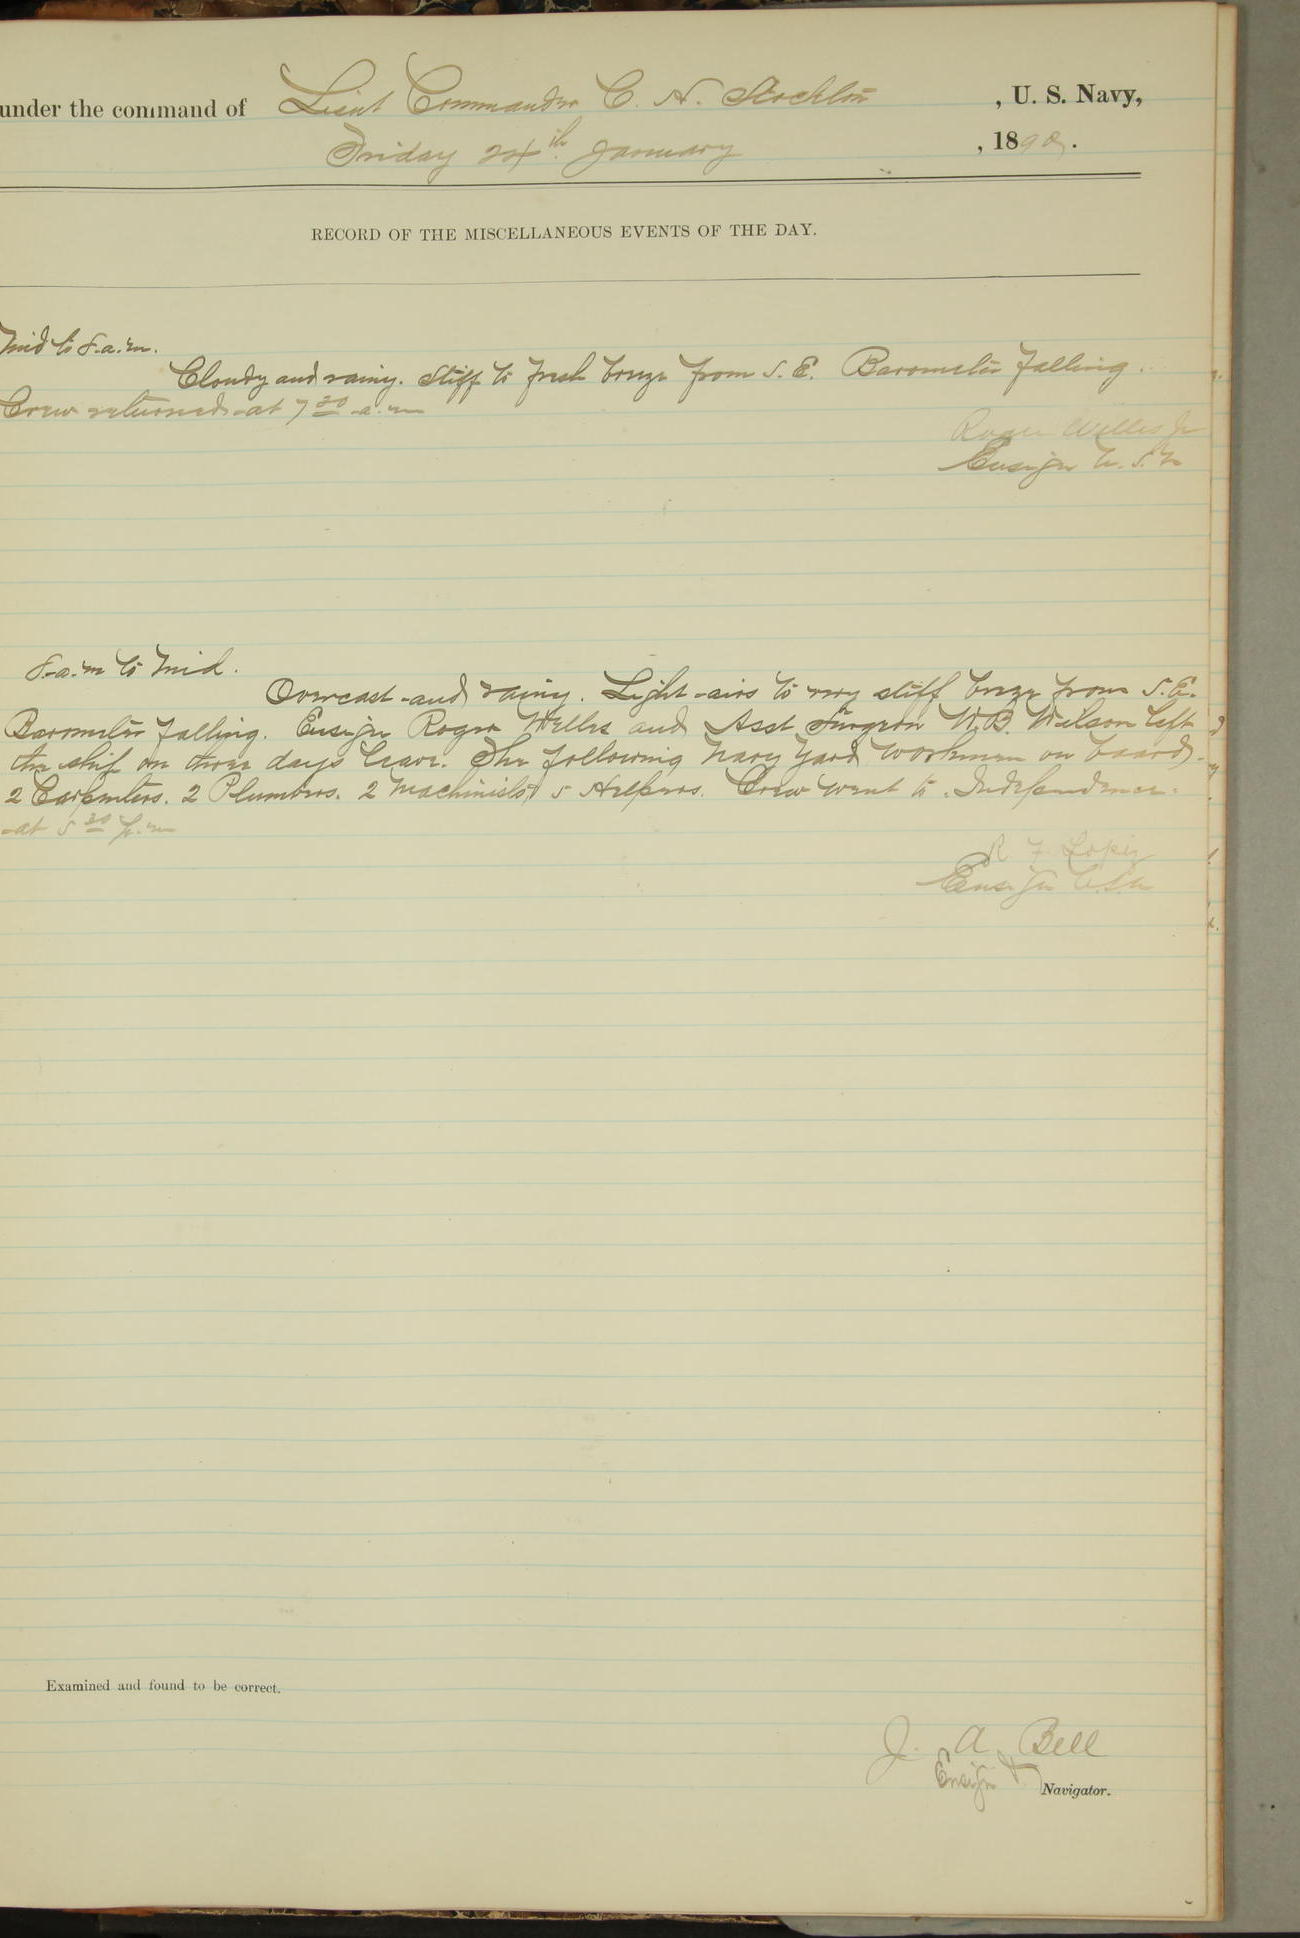 under the command of Lieut Commander C. H. Stockton, U. S. Navy,
Friday 24th January, 1890.
RECORD OF THE MISCELLANEOUS EVENTS OF THE DAY.
Mid to 8.a.m.
Cloudy and rainy. Stiff to fresh breeze from S.E. Barometer falling.
Crew returned at 7 30 a.m
Roger Welles Jr
Ensign U.S.N
8.a.m to Mid.
Overcast and rainy. Light airs to very stiff breeze from S.E.
Barometer falling. Ensign Roger Welles and Asst Surgeon Wilson left
the ship on three days leave. The following Navy Yard Workmen on board
2 Carpenters. 2 Plumbers. 2 Machinists, 5 Helpers. Crew went to Independence.
at 5 30 p.m
R F Lopez
Ensign USN
Examined and found to be correct.
J. A. Bell
Ensign & Navigator.